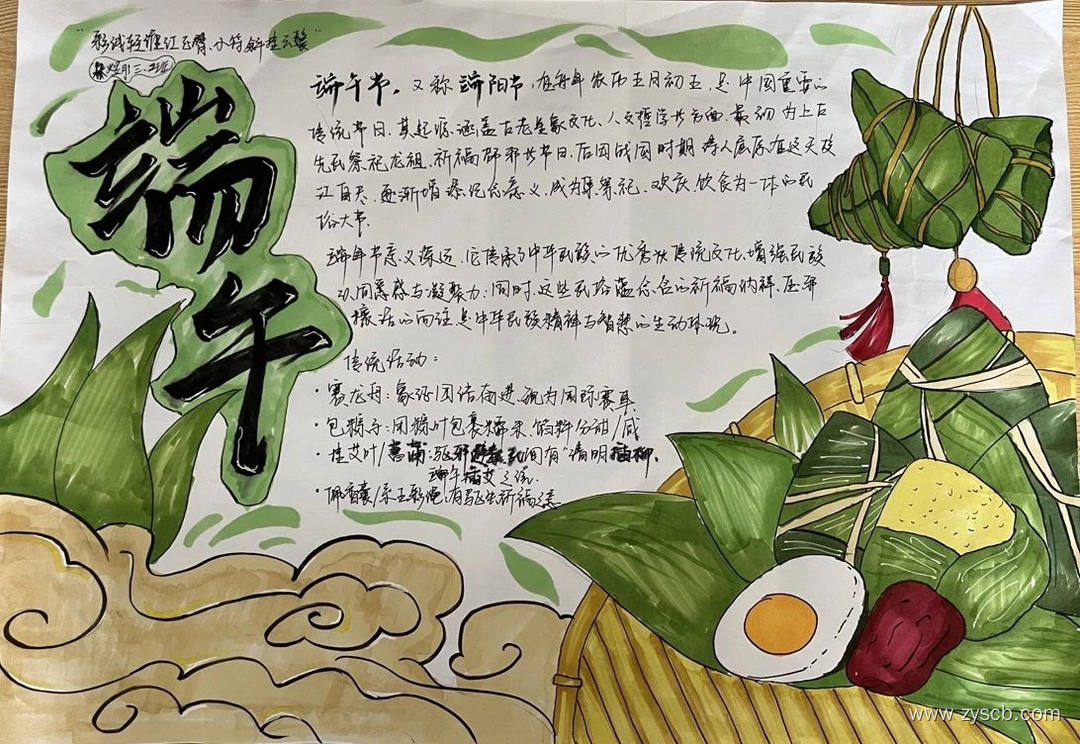 "彩线轻缠红玉臂,小符斜挂绿云鬟"
三·班
端午
端午节,又称端阳节,在每年农历五月初五,是中国重要的
传统节日,其起源涵盖古老星象文化、人文哲学等方面,最初为上古
先民祭祀龙祖、祈福辟邪节日,后因战国时期诗人屈原在这天投
江自尽,逐渐增添纪念意义,成为集祭祀、欢庆、饮食为一体的民
俗大节.
端午节意义深远,它传承了中华民族的优秀传统文化,增强民族
认同感与凝聚力;同时,这些民俗蕴含的祈福纳祥、压邪
攘灾的向往是中华民族精神与智慧的生动体现。
传统活动:
·赛龙舟:象征团结奋进,现为国际赛事
·包粽子:用粽叶包裹糯米,馅料分甜/咸
·挂艾叶/菖蒲:驱邪 民间有"清明插柳,
端午插艾"之说.
·佩香囊/系五彩绳,有驱虫祈福之意
www.zyscb.com